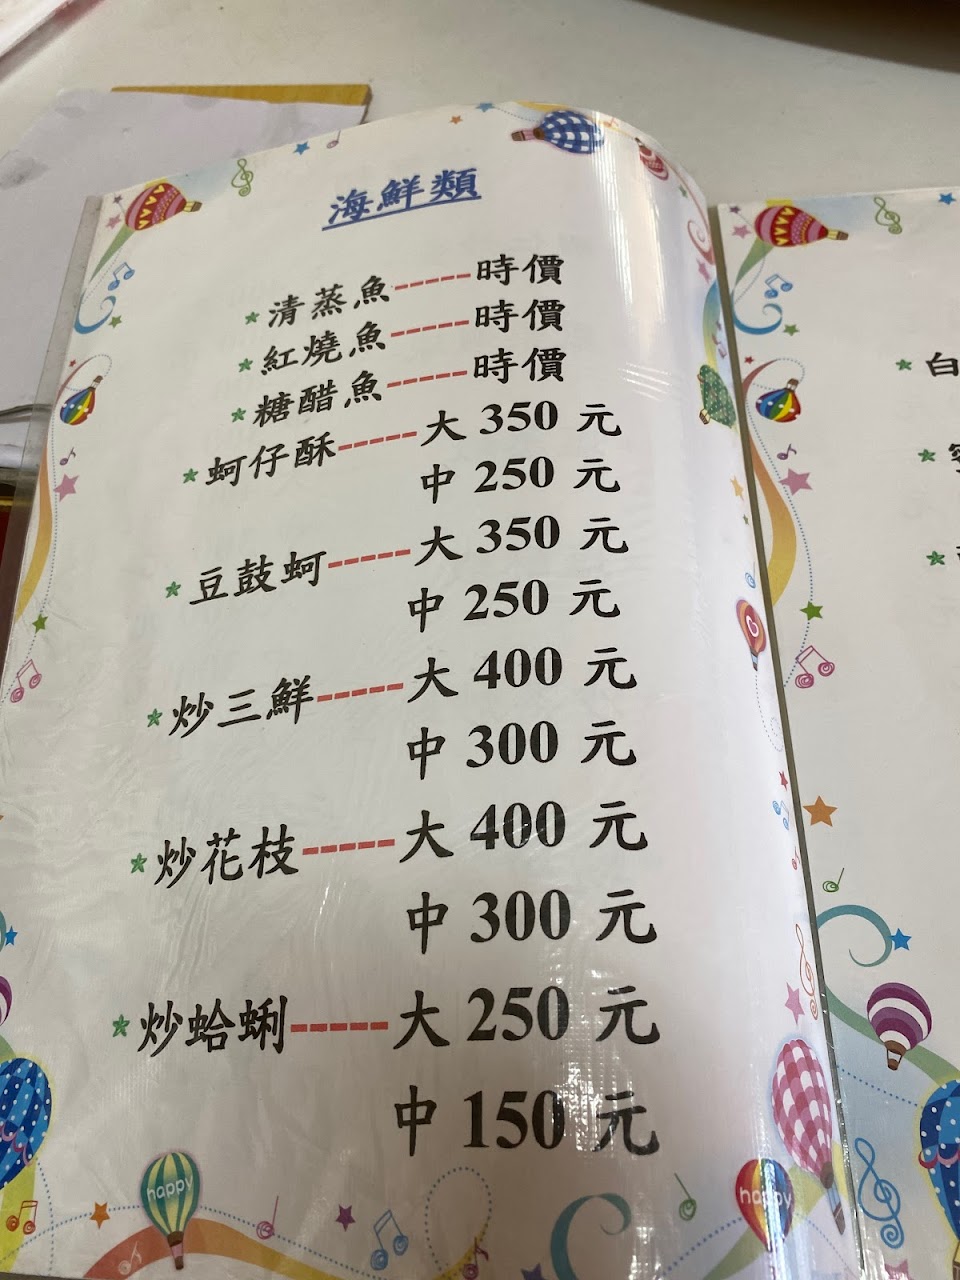 海鮮類
清蒸魚-----時價
紅燒魚-----時價
糖醋魚-----時價
蚵仔酥-----大 350 元
中 250 元
豆鼓蚵-----大 350 元
中 250 元
炒三鮮-----大 400 元
中 300 元
炒花枝-----大 400 元
中 300 元
炒蛤蜊-----大 250 元
中 150 元
happy
happy
白